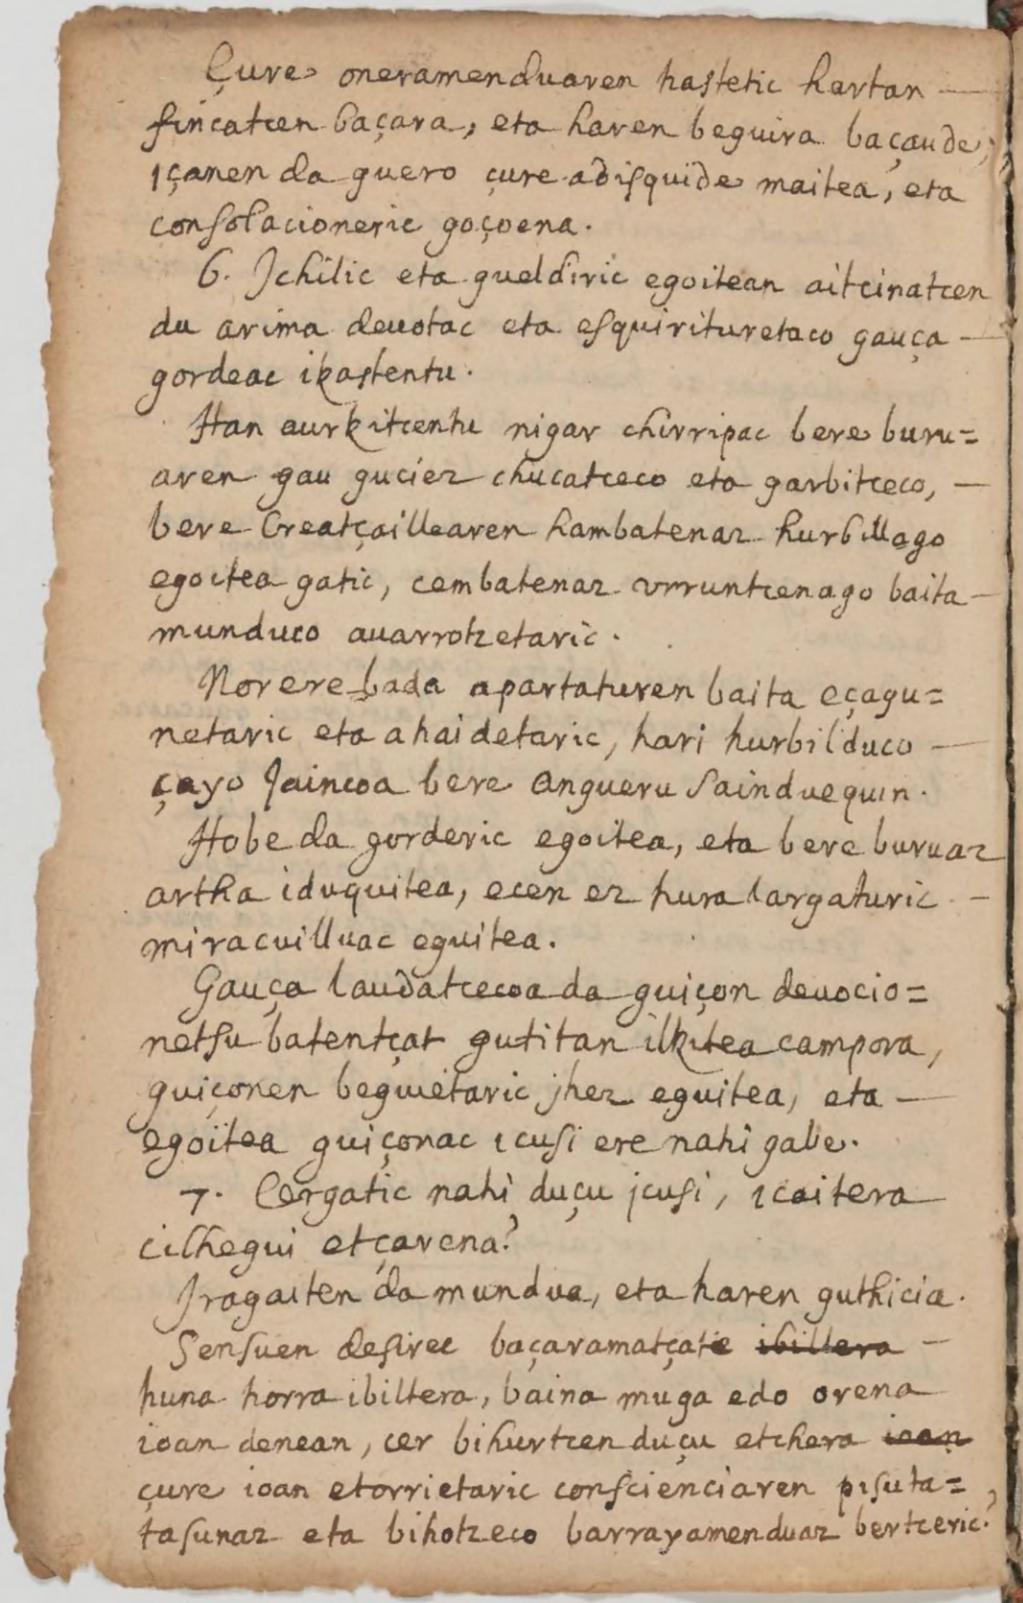 Çure oneramenduaren hastetic hartan —
fincatcen baçara, eta haren beguira baçaude,
içanen da guero çure adisquide maitea, eta
consolacioneric goçoena.
6. Ichilic eta gueldiric egoitean aitcinatcen
du arima deuotac eta esquirituretaco gauça —
gordeac ikastentu.
Han aurkitcentu nigar chirripac bere buru=
aren gau guciez chucatceco eta garbitceco, —
bere Creatçaillearen hambatenaz hurbillago
egoitea gatic, cembatenaz vrruntcenago baita —
munduco auarrotzetaric.
Norere bada apartaturen baita eçagu=
netaric eta ahaidetaric, hari hurbilduco —
çayo Jaincoa bere Angueru Sainduequin.
Hobe da gorderic egoitea, eta bere buruaz
artha iduquitea, ecen ez hura largaturic —
miracuilluac eguitea.
Gauça laudatcecoa da guiçon deuocio=
netsu batentçat gutitan ilkitea campora,
guiçonen beguietaric jhez eguitea, eta —
egoitea guiçonac icusi ere nahi gabe.
7. Cergatic nahi duçu jcusi, icaitera
cilhegui etçarena?
Iragaiten da mundua, eta haren guthicia.
Sensuen desirec baçaramatçate ibillera —
huna horra ibiltera, baina muga edo orena
ioan denean, cer bihurtcen duçu etchera ioan
çure ioan etorrietaric conscienciaren pisuta=
tasunaz eta bihotzeco barrayamenduaz bertceric?